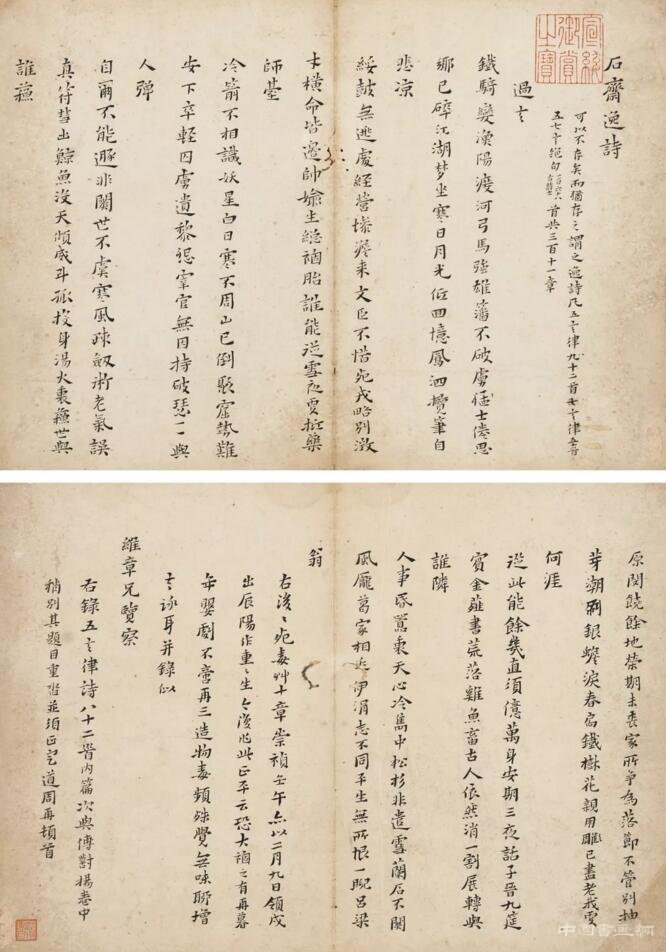 石齋逸詩
可以不存矣而猶存之謂之逸詩凡五言律九十二首
五七言絕句首共三百十一章
過
鐵騎變漁陽渡河弓馬強雄藩不破虜猛士倦思
鄉已碎江湖夢坐寒日月光低回憶鳳泗攬筆自
悲涼
綏鼓無遺處經營慘澹來文臣不惜死戎略別
才橫命皆邊帥媮生總禍胎誰能逆雪夜更
師臺
冷箭不相識妖星白日寒不周山已倒聚窟勢難
安下卒輕囚虜遺黎怨宰官無因持破瑟一一與
人彈
自爾不能遯非關世不虞寒風疎劍術老氣誤
真符彗出鯨魚沒天傾成斗孤投身湯火裏世與
誰蘇
原閱饒餘地榮期未喪家所爭為落節不管別抽
芽潮刷銀蟾淚春扃鐵樹花親用雕已盡老我更
何涯
從此能餘幾直須億萬身安期三夜話子晉九筵
賓金薤書荒落雞魚畜古人依然消一割展轉與
誰隣
人事昏囂裏天心冷雋中松杉非遣雪蘭石不關
風龐葛家相近伊涓志不同平生無所恨一睨呂梁
翁
右後死毒艸十章崇禎壬午亦以二月九日領戍
出辰陽作重之生之後作此正平云恐大禍之有再暮
年嬰劇不啻再三造物毒頻殊覺無味聊增
言詠耳并錄似
維章兄覽察
右錄五言律詩八十二首內篇次與傅對揚卷中
稍別其題目重沓並須正定道周再頓首
宣統御賞之寶
中国书画网